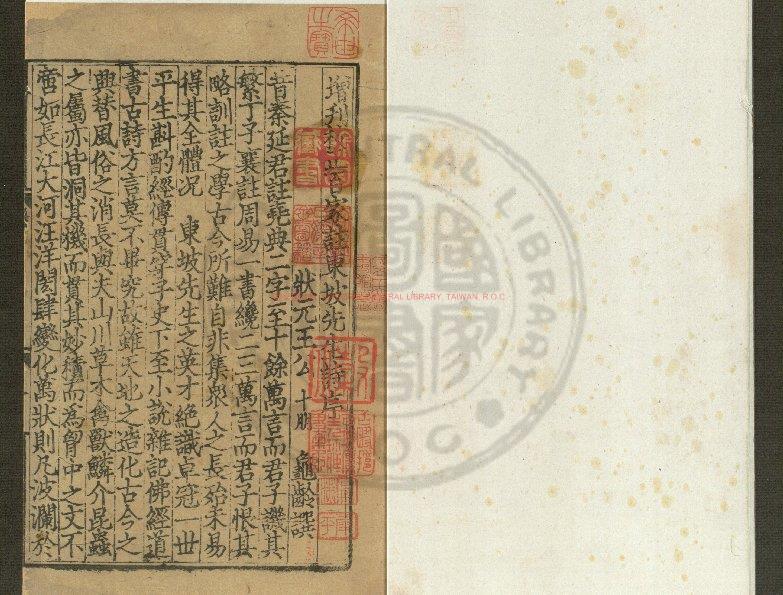 增刊校正百家註東坡先生詩序
狀元王公 十朋 龜齡 譔
昔秦延君註堯典二字至十餘萬言而君子譏其
繁丁子襄註周易一書纔二三萬言而君子恨其
略訓註之學古今所難自非集衆人之長殆未易
得其全體況 東坡先生之英才絕識卓冠一世
平生斟酌經傳貫穿子史下至小說雜記佛經道
書古詩方言莫不畢究故雖天地之造化古今之
興替風俗之消長與夫山川草木禽獸鱗介昆蟲
之屬亦皆洞其機而貫其妙積而為胷中之文不
啻如長江大河汪洋閎肆變化萬狀則凡波瀾於
CENTRAL LIBRARY, TAIWAN, R.O.C
CENTRAL LIBRARY
R.O.C